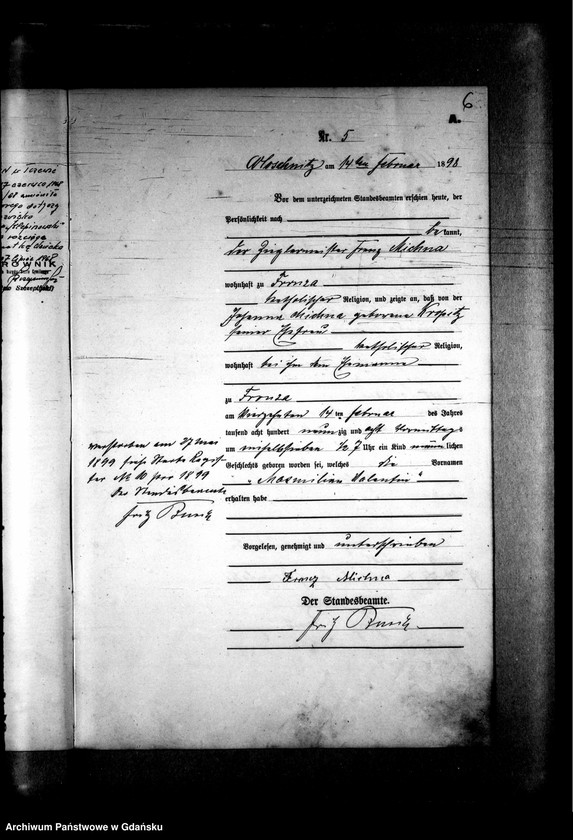 6
A.
Nr. 5
am 14ten Februar 1898
Vor dem unterzeichneten Standesbeamten erschien heute, der
Persönlichkeit nach
be kannt,
der Zieglermeister Franz Michna
wohnhaft zu Fronza
katholischer Religion, und zeigte an, daß von der
Johanna Michna geborene
seiner Ehefrau
katholischer Religion,
wohnhaft bei ihm dem Ehemanne
zu Fronza
am vierzehnten 14ten Februar des Jahres
tausend acht hundert neunzig und acht Vormittags
um 1/2 7 Uhr ein Kind männlichen
Geschlechts geboren worden sei, welches die Vornamen
„Maximilian Valentin“
erhalten habe
Vorgelesen, genehmigt und unterschrieben
Franz Michna
Der Standesbeamte.
Fritz
verstorben am 27 Mai
1899 Sterbe Regis-
ter № 10 pro 1899
Der Standesbeamte
Fritz
Archiwum Państwowe w Gdańsku